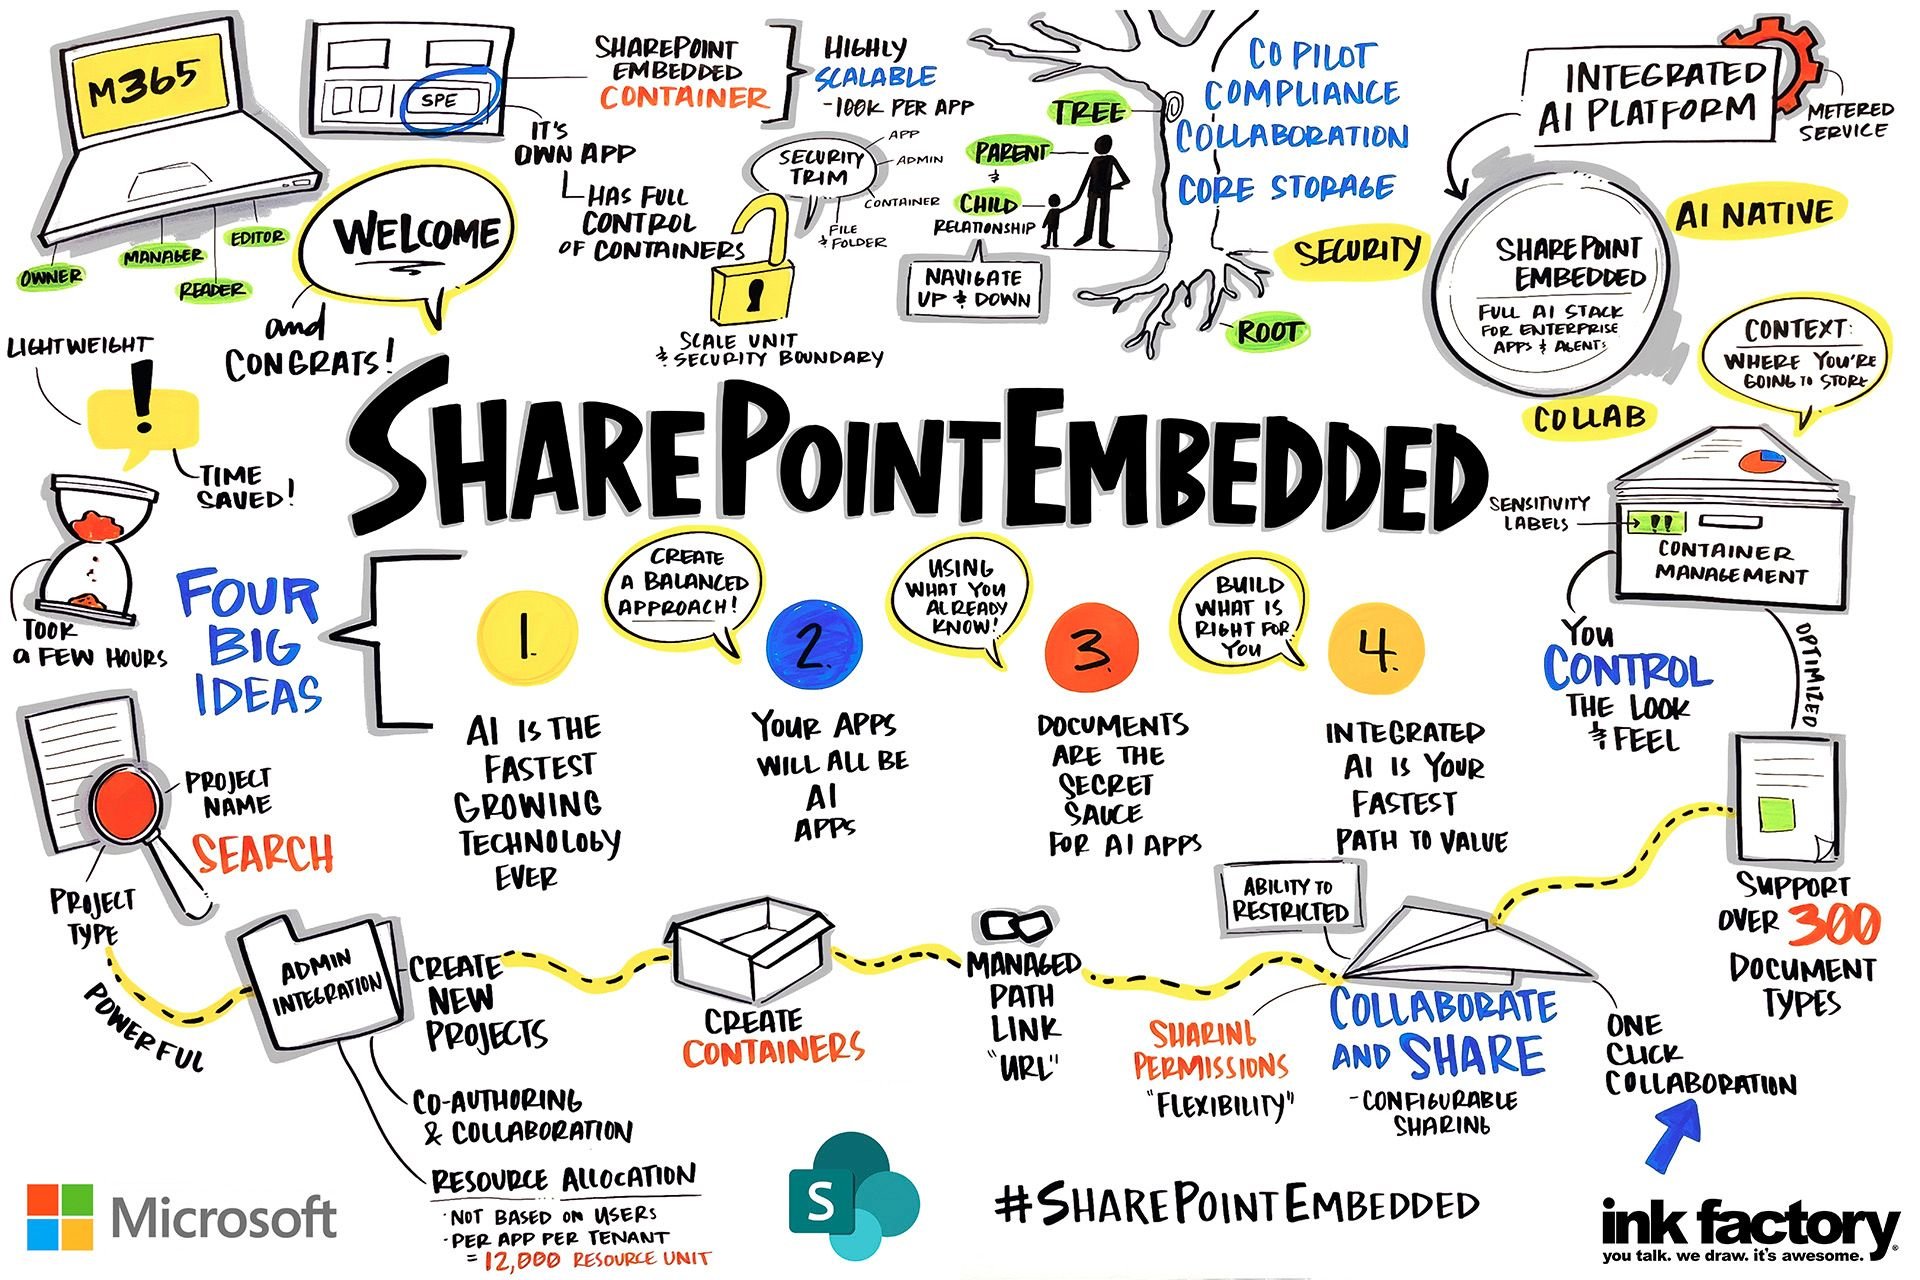 M365
OWNER
MANAGER
READER
EDITOR
SPE
SHAREPOINT
EMBEDDED
CONTAINER
IT'S
OWN APP
HAS FULL
CONTROL
OF CONTAINERS
HIGHLY
SCALABLE
-100K PER APP
WELCOME
and
CONGRATS!
SECURITY
TRIM
APP
ADMIN
CONTAINER
FILE
& FOLDER
SCALE UNIT
& SECURITY BOUNDARY
TREE
PARENT
&
CHILD
RELATIONSHIP
NAVIGATE
UP & DOWN
ROOT
COPILOT
COMPLIANCE
COLLABORATION
CORE STORAGE
INTEGRATED
AI PLATFORM
METERED
SERVICE
SECURITY
AI NATIVE
COLLAB
SHAREPOINT
EMBEDDED
FULL AI STACK
FOR ENTERPRISE
APPS & AGENTS
CONTEXT:
WHERE YOU'RE
GOING TO STORE
LIGHTWEIGHT
!
TIME
SAVED!
TOOK
a FEW HOURS
SHAREPOINT EMBEDDED
SENSITIVITY
LABELS
!!
CONTAINER
MANAGEMENT
YOU
CONTROL
THE LOOK
& FEEL
OPTIMIZED
FOUR
BIG
IDEAS
1.
AI IS THE
FASTEST
GROWING
TECHNOLOGY
EVER
CREATE
A BALANCED
APPROACH!
2.
YOUR APPS
WILL ALL BE
AI
APPS
USING
WHAT YOU
ALREADY
KNOW!
3.
DOCUMENTS
ARE THE
SECRET
SAUCE
FOR AI APPS
BUILD
WHAT IS
RIGHT FOR
YOU
4.
INTEGRATED
AI IS YOUR
FASTEST
PATH TO VALUE
PROJECT
NAME
SEARCH
PROJECT
TYPE
POWERFUL
ADMIN
INTEGRATION
CREATE
NEW
PROJECTS
CO-AUTHORING
& COLLABORATION
RESOURCE ALLOCATION
·NOT BASED ON USERS
·PER APP PER TENANT
= 12,000 RESOURCE UNIT
CREATE
CONTAINERS
MANAGED
PATH
LINK
"URL"
ABILITY TO
RESTRICTED
SHARING
PERMISSIONS
"FLEXIBILITY"
COLLABORATE
AND SHARE
-CONFIGURABLE
SHARING
ONE
CLICK
COLLABORATION
SUPPORT
OVER 300
DOCUMENT
TYPES
Microsoft
S
#SHAREPOINTEMBEDDED
ink factory®
you talk. we draw. it's awesome.